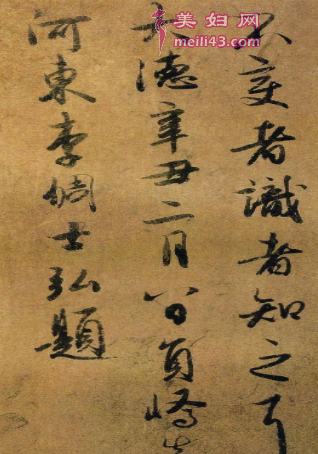 美妇网
meili43.com
不变者識者知之耳
大德辛丑二月八日員嶠
河東李倜士弘題